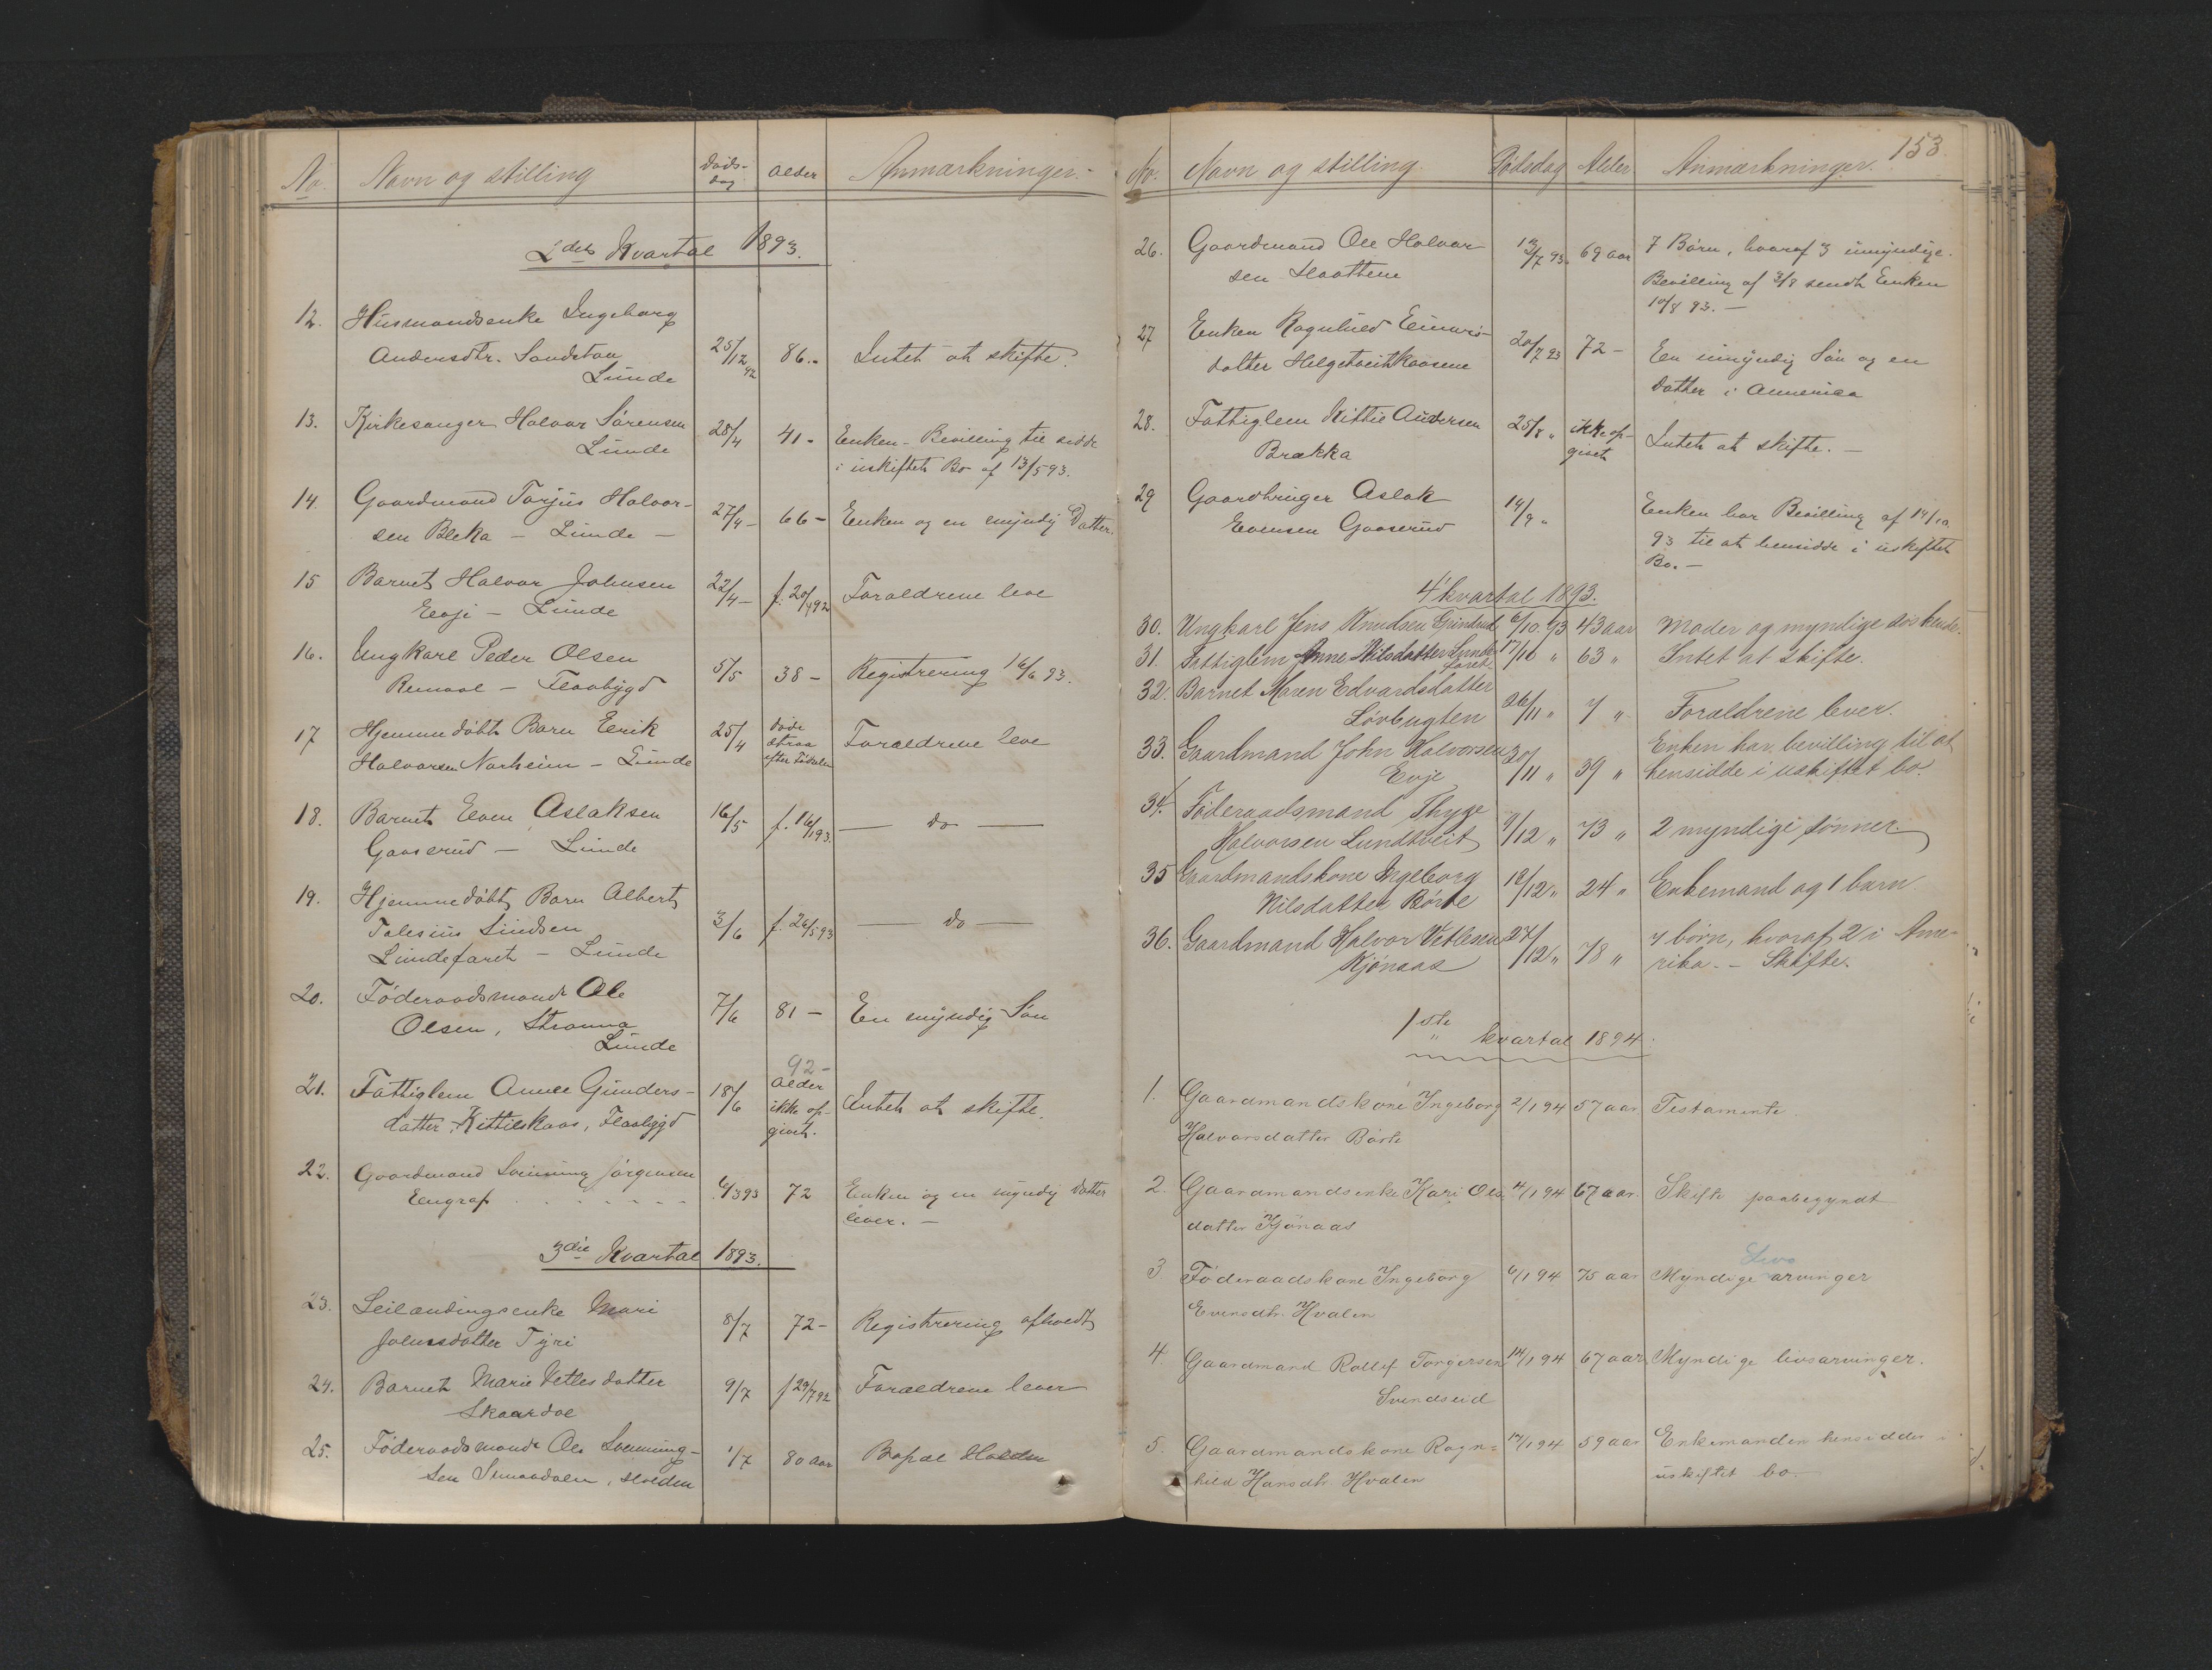 No. Navn og stilling Døds- Alder Anmærkninger.-
dag
2det Kvartal 1893.
12. Husmandsenke Ingeborg
Andersdtr. Landstou 25/12 92 86.- Intet at skifte.
Lunde
13. Kirkesanger Halvor Sørensen 28/4 41- Enken - Bevilling til sidde
Lunde i uskiftet Bo af 13/5 93.
14. Gaardmand Torjus Halvor- 27/4- 66- Enken og en myndig Datter.
sen Bleka - Lunde -
15 Barnet Halvor Johnsen 22/4- f. 20/4 92 Forældrene leve
Evji - Lunde
16. Ungkarl Peder Olsen
Remool - Flaabygd 5/5 38- Registrering 16/6 93.
17 Hjemmedøbt Barn Eerik 25/4 døde Forældrene leve
Halvorsen Norheim - Lunde straa
efter Fødselen
18. Barnet Even Aslaksen 16/5 f. 16/1 93. - do -
Gaaserud - Lunde
19. Hjemmedøbt Barn Albert
Talesius Lindsen 3/6 f. 26/5 93 - do -
Lundefaret - Lunde
20. Föderaadsmand Ole 7/6 81 - En myndig Søn
Olsen, Stranna
Lunde
92-
21. Fattiglem Anne Gunders- 18/6 Alder Intet at skifte.
datter, Kittilskaas, Flaabygd ikke op-
givet.
22. Gaardmand Svenning Jørgensen
Eengraf 6/3 93 72 Enken og en myndig Datter
lever. -
3die Kvartal 1893.
23. Leilændingsenke Mari
Johnsdatter Tyri 8/7 72- Registrering afholdt
24. Barnet Marie Vetlesdatter 9/7 f 29/7 92 Forældrene lever
Skaardal
25. Föderaadsmand Ole Svenning- 1/7 80 aar Bopæl Holden
sen Simondalen, Holden
153.
No. Navn og stilling. Dödsdag Alder Anmærkninger.
26. Gaardmand Ole Halvor- 13/7 93. 69 aar 7 Børn, hvoraf 3 umyndige.
sen Haattene Bevilling af 3/8 sendt Enken
10/8 93. -
27 Enken Ragnhild Einars- 20/7 93 72- En umyndig Søn og en
datter Helgetveitkaasene Datter i Amerika
28. Fattiglem Kittil Andersen 25/8 " ikke op- Intet at skifte. -
Brækka givet
29 Gaardbruger Aslak 14/9 " Enken har Bevilling af 14/10
Evensen Gaaserud 93 til at hensidde i uskiftet
Bo. -
4' kvartal 1893.
30. Ungkarl Jens Knudsen Grimdrud 6/10. 93 43 aar Moder og myndige søskende.
31. Fattiglem Anne Nilsdatter Lunde- 17/10 " 63 " Intet at skifte.
faret
32. Barnet Maren Edvardsdatter
Løvbugten 26/11 " 7 " Forældrene lever.
33. Gaardmand John Halvorsen 30/11 " 39 " Enken har bevilling til at
Evje hensidde i uskiftet bo.
34. Föderaadsmand Thyge
Halvorsen Lundtveit 7/12 " 73 " 2 myndige sønner.
35 Gaardmandskone Ingeborg 18/12 " 24 " Enkemand og 1 barn.
Nilsdatter Børte
36. Gaardmand Halvor Vetlesen 27/12 " 78 " 7 børn, hvoraf 2 i Ame-
Kjönaas rika. - Skifte.
1ste kvartal 1894.
1. Gaardmandskone Ingeborg 2/1 94 57 aar Testamente.
Halvorsdatter Börte
2. Gaardmandsenke Kari Ols- 4/1 94 67 aar. Skifte paabegyndt
datter Kjönaas
Livs
3 Föderaadskone Ingeborg 6/1 94 75 aar Myndige arvinger
Evensdtr. Hvalen
4. Gaardmand Rollef Torgersen 14/1 94 67 aar Myndige livsarvinger.
Svendseid
5. Gaardmandskone Ragn= 17/1 94 59 aar Enkemanden hensidder i
hild Hansdtr. Hvalen uskiftet bo.